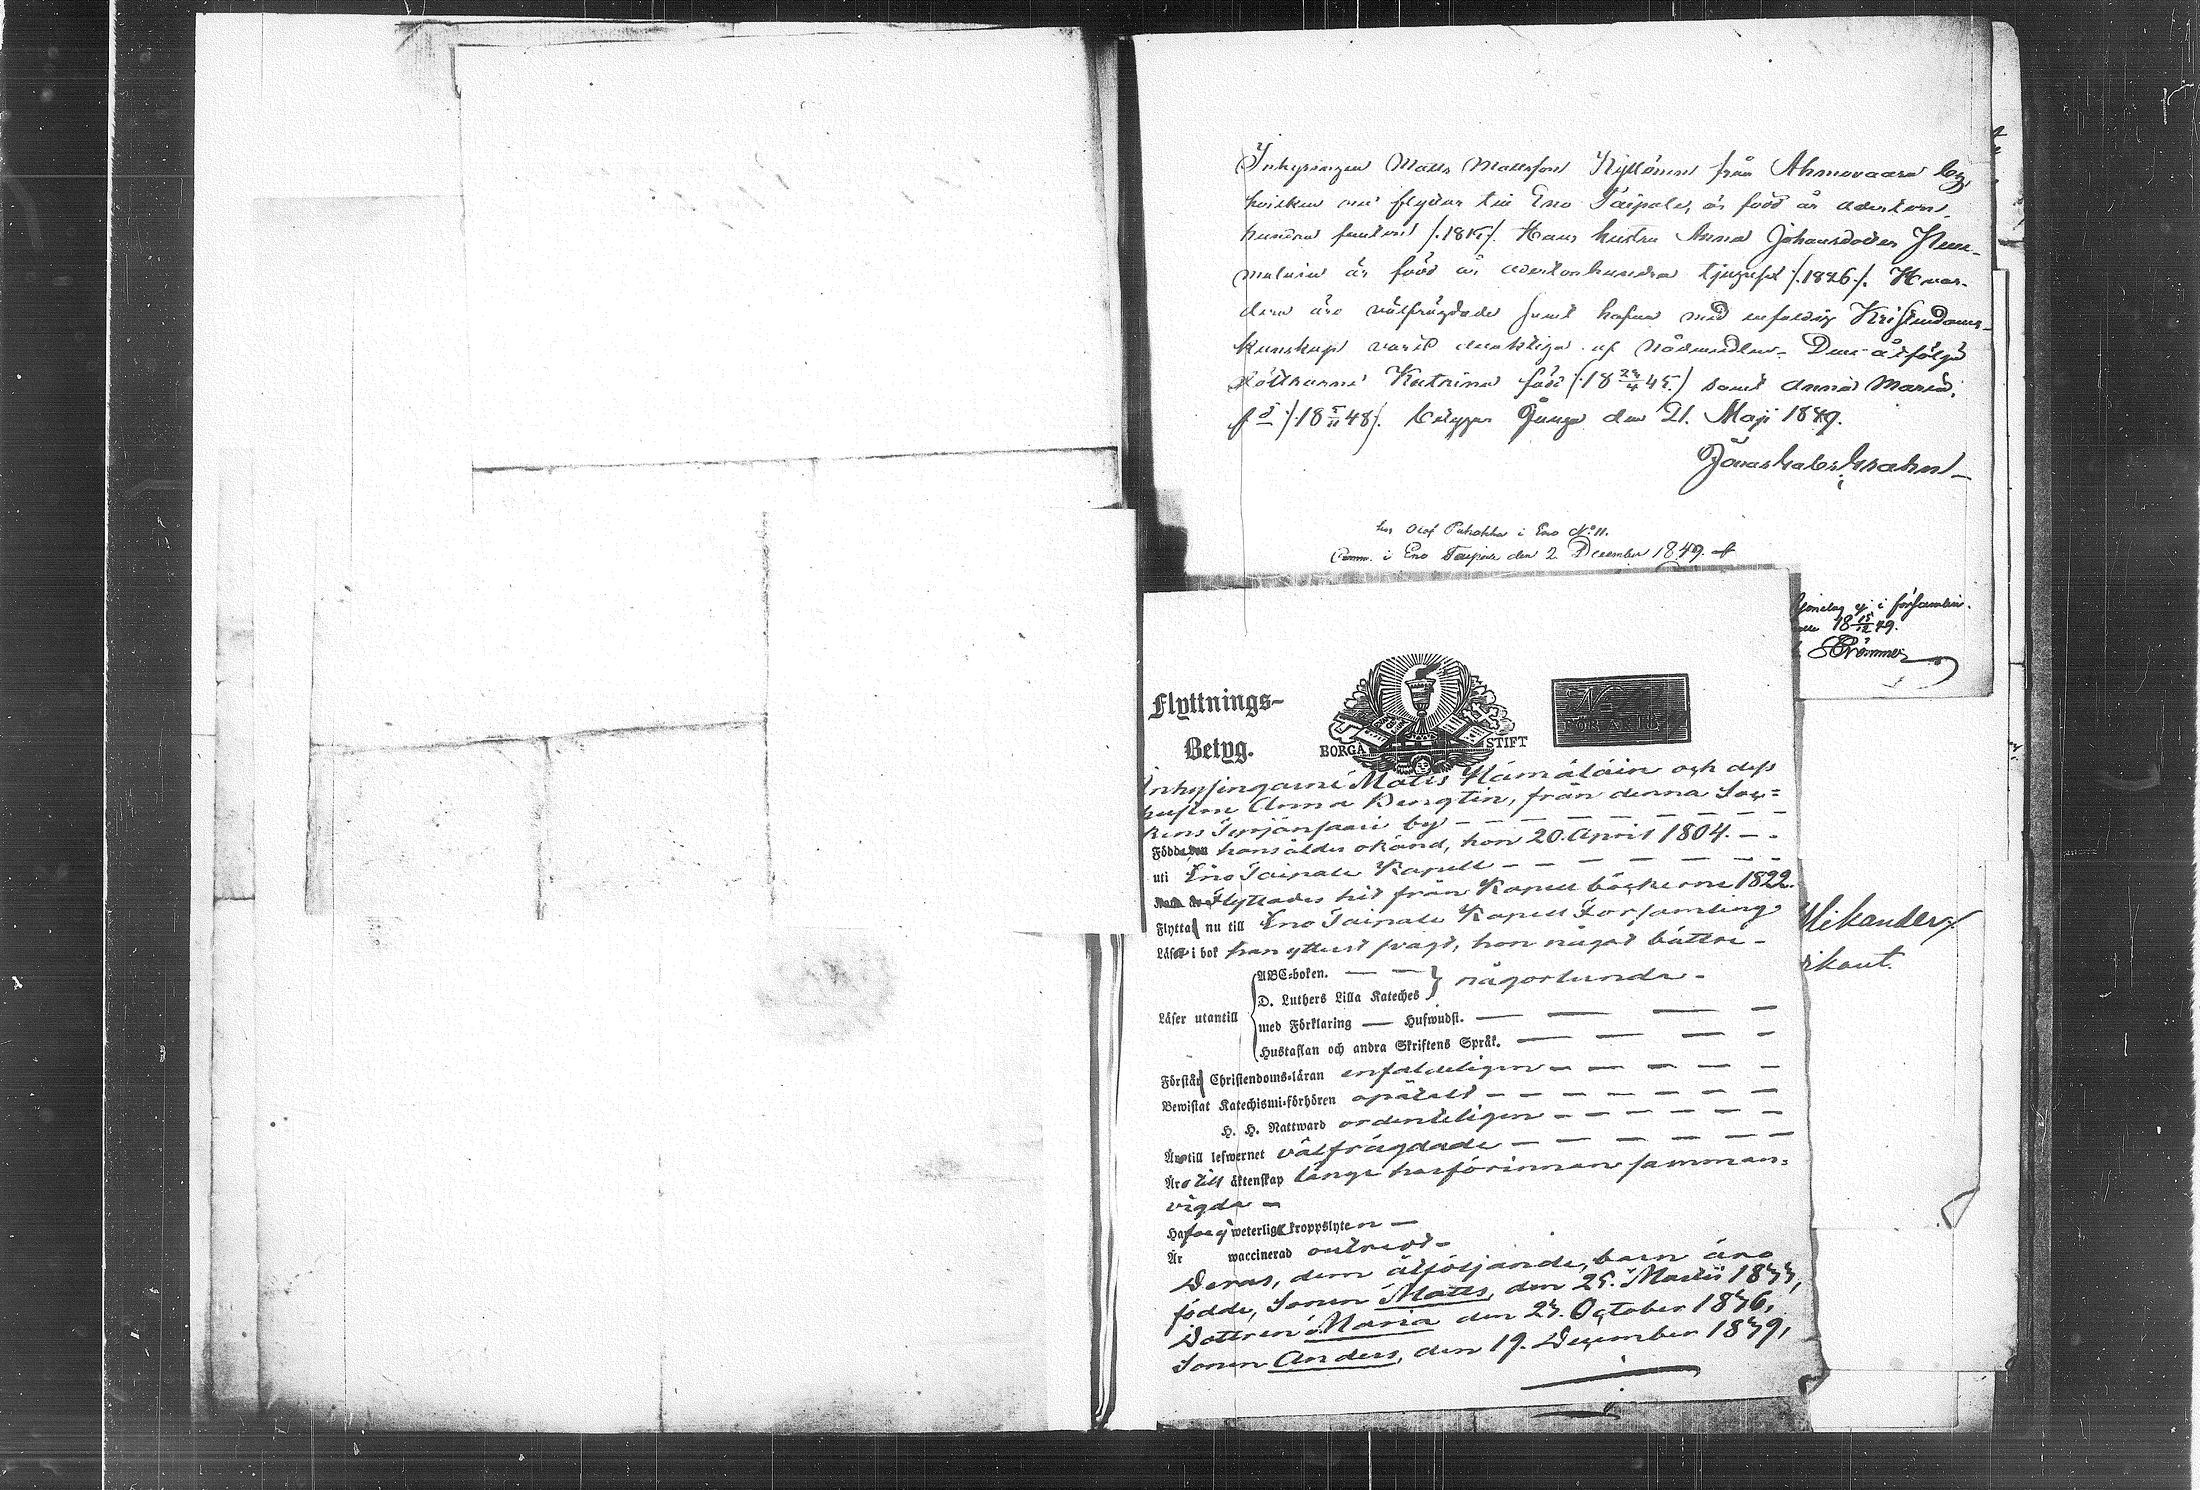 Inhysingen Matts Mattsson Kyllönen från Ahmovaara by,
hvilken nu flyttar till Eno Taipale, är född år aderton-
hundra femton /.1815/. Hans hustru Anna Johansdotter
är född år adertonhundra tjugusex /.1826./. Hvar-
dera äro välfrägdade samt hafva med enfaldig Kristendoms-
kunskap varit delaktige af nådemedlen. Dem åtfölja
döttrarne Katrina född (.18 45.) samt Anna Maria,
fd /.18 5/11 48/. betygar Junga den 21. Maji 1849.
Jonas Grahn
hos Olof Puhakka i Eno No 11.
i Eno Taipale den 2 December 1849. af
i församlin.
18 15/12 49.
Flyttnings-
Betyg.
BORGÅ STIFT
Inhysingarne Matts Hämäläin och dess
hustru Anna Bengtin, från denna Soc=
kens by
Födde hans ålder okänd, hon 20. April 1804.
uti Eno Taipale Kapell
flyttades hit från Kapell böckerne 1822.
Flytta nu till Eno Taipale Kapell Församling
Läser i bok han ytterst svagt, hon något bättre
ABC-boken.
D. Luthers Lilla Kateches någorlunda
Läser utantill
med Förklaring Hufwudst.
Hustaflan och andra Skriftens Språk.
Förstår Christendoms-läran enfaldeligen
Bewistat Katechismi-förhören opåtalt
H. H. Nattward ordenteligen
Äro till lefwernet välfrägdade
Äro till äktenskap länge härförinnan samman-
vigda
Hafva ej weterliga kroppslyten
Är waccinerad outredt
Deras, dem åtföljande, barn äro
födde, Sonen Matts, den 25. Martii 1844,
Dottren Maria den 24. October 1846,
Sonen Anders, den 19. December 1849,